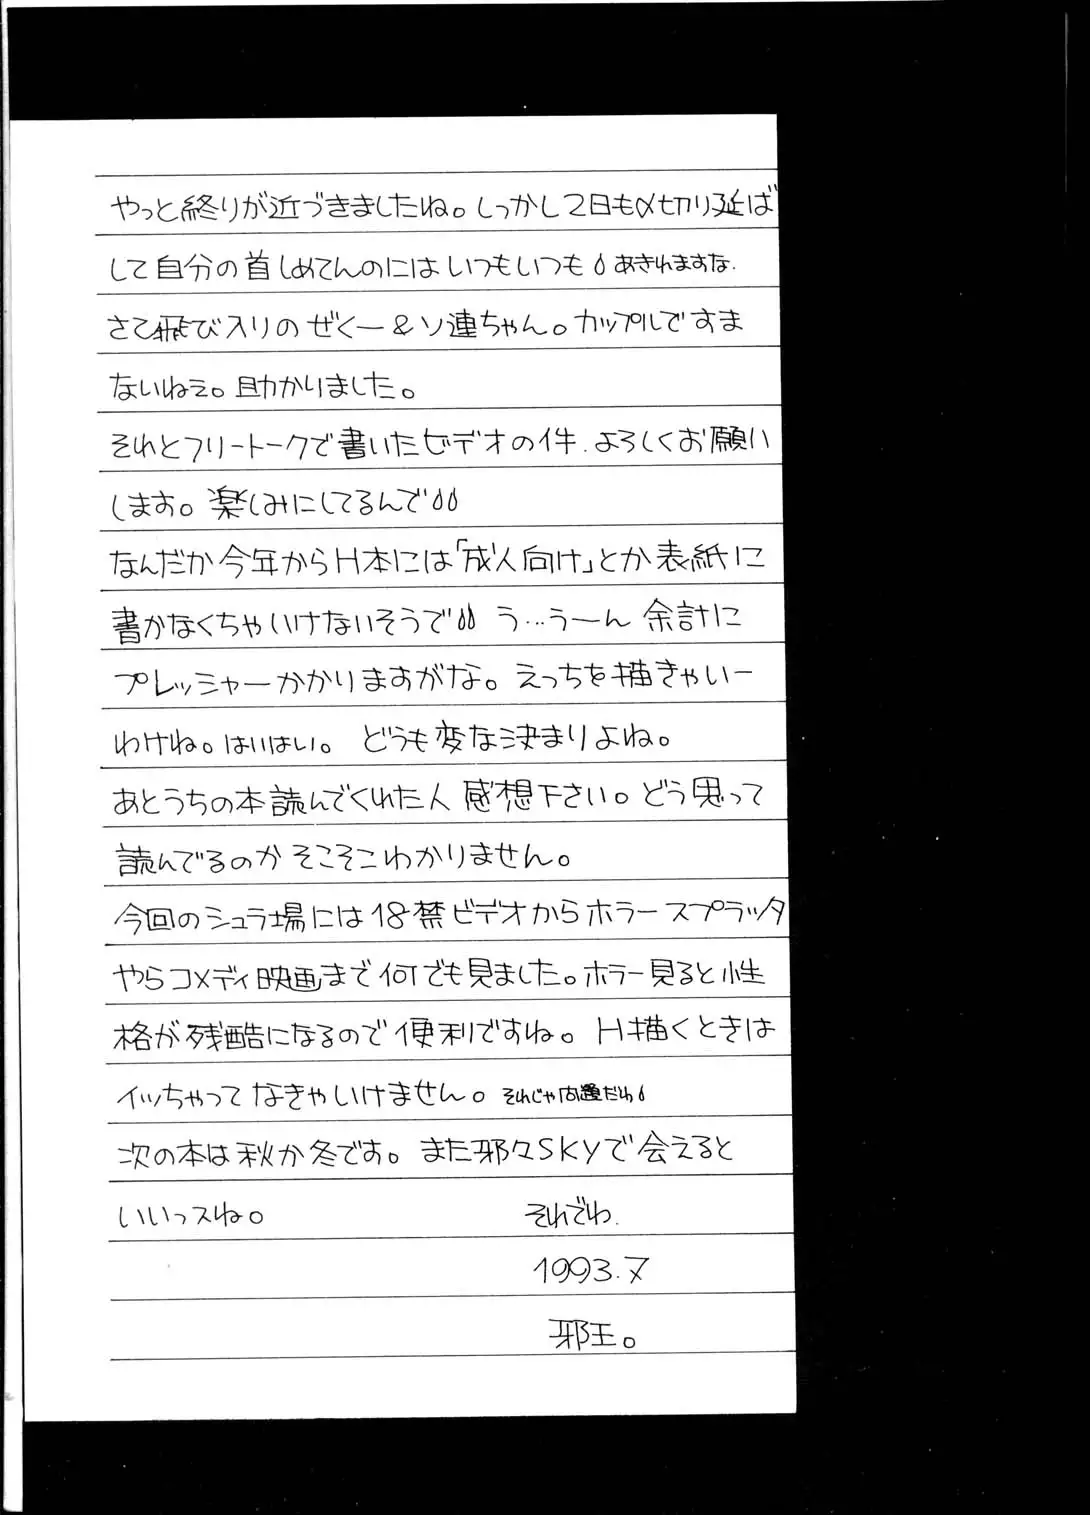 やっと終りが近づきましたね。しっかし2日も〆切り延ば
して自分の首しめてんのにはいつもいつも あきれますな.
さて飛び入りのぜくー&ソ連ちゃん。カップルですま
ないねェ。助かりました。
それとフリートークで書いたビデオの件.よろしくお願い
します。楽しみにしてるんで
なんだか今年からH本には「成人向け」とか表紙に
書かなくちゃいけないそうで う…うーん 余計に
プレッシャーかかりますがな。えっちを描きゃいー
わけね。はいはい。 どうも変な決まりよね。
あとうちの本読んでくれた人 感想下さい。どう思って
読んでるのか そこそこわかりません。
今回のシュラ場には18禁ビデオからホラースプラッタ
やらコメディ映画まで何でも見ました。ホラー見ると性
格が残酷になるので便利ですね。H描くときは
イッちゃってなきゃいけません。それじゃ問題だわ
次の本は秋か冬です。また邪々SKYで会えると
いいっスね。 それでわ.
1993.7
邪王。